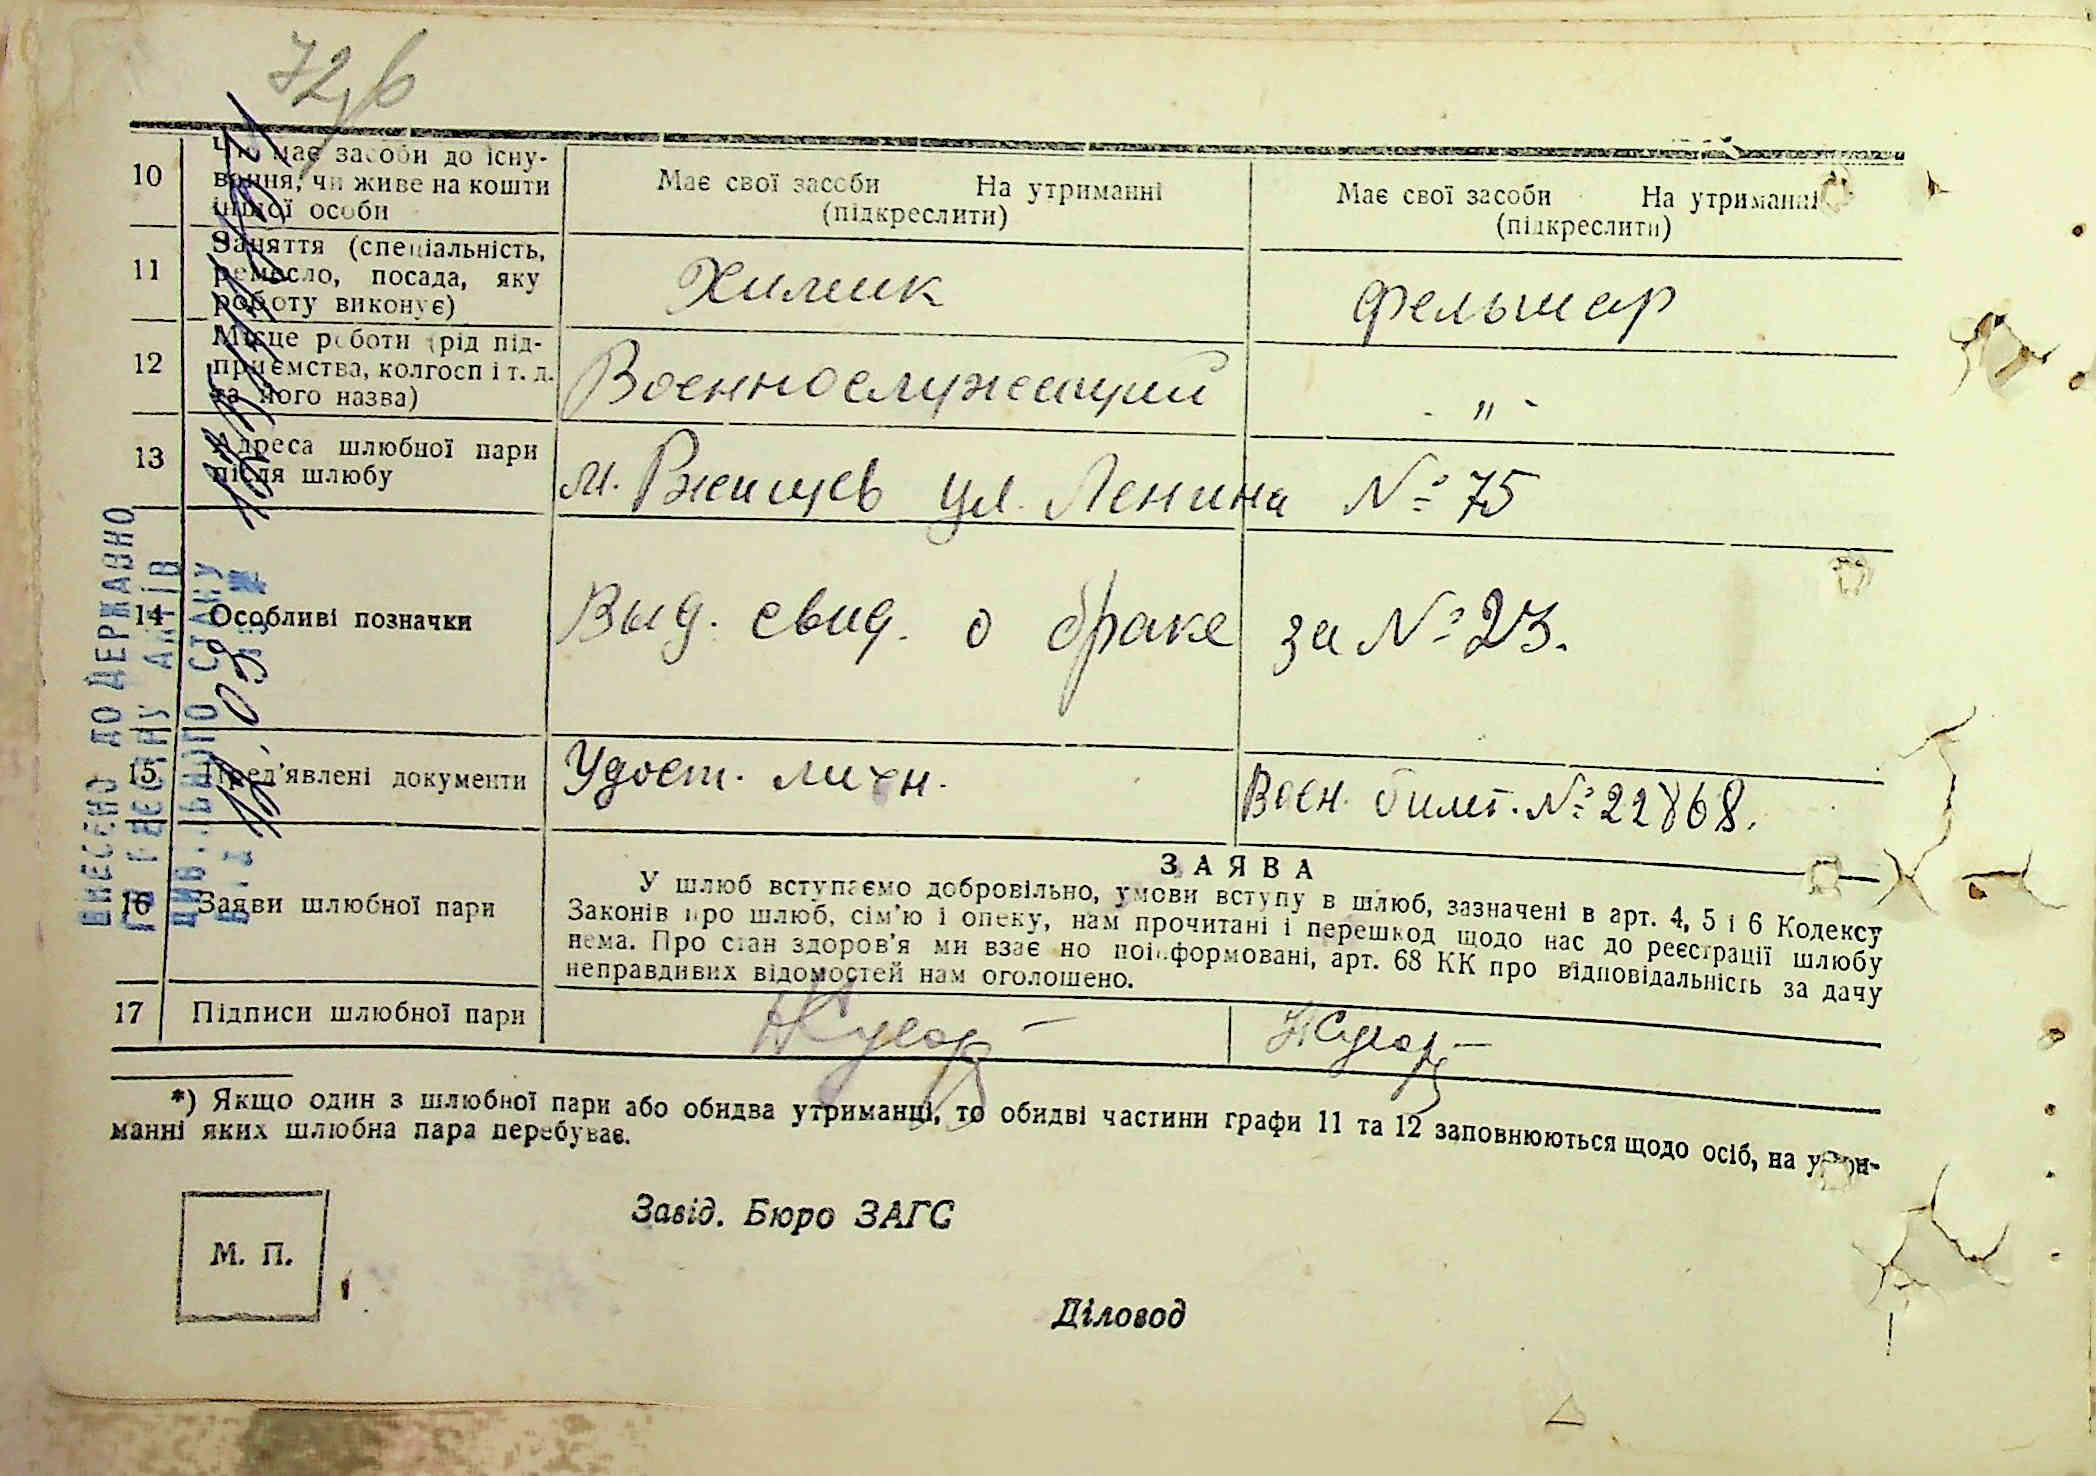 10
Чи має засоби до існу-
вання, чи живе на кошти
іншої особи
Має свої засоби На утриманні
(підкреслити)
Має свої засоби На утриманні
(підкреслити)
11
Заняття (спеціальність,
ремесло, посада, яку
роботу виконує)
Химик
Фельшер
12
Місце роботи (рід під-
приємства, колгосп і т. д.
та його назва)
Военнослужещий
- " -
13
Адреса шлюбної пари
після шлюбу
м. Ржищев ул. Ленина № 75
14
Особливі позначки
Выд. свид. о браке за № 23.
15
Пред'явлені документи
Удост. личн.
Воен. билет. № 22868.
16
Заяви шлюбної пари
ЗАЯВА
У шлюб вступаємо добровільно, умови вступу в шлюб, зазначені в арт. 4, 5 і 6 Кодексу
Законів про шлюб, сім'ю і опеку, нам прочитані і перешкод щодо нас до реєстрації шлюбу
нема. Про стан здоров'я ми взаємно поінформовані, арт. 68 КК про відповідальність за дачу
неправдивих відомостей нам оголошено.
17
Підписи шлюбної пари
*) Якщо один з шлюбної пари або обидва утриманці, то обидві частини графи 11 та 12 заповнюються щодо осіб, на утри-
манні яких шлюбна пара перебуває.
М. П.
Завід. Бюро ЗАГС
Діловод
ВНЕСЕНО ДО ДЕРЖАВНО
ГО РЕЄСТРУ АКТІВ
ЦИВІЛЬНОГО СТАНУ